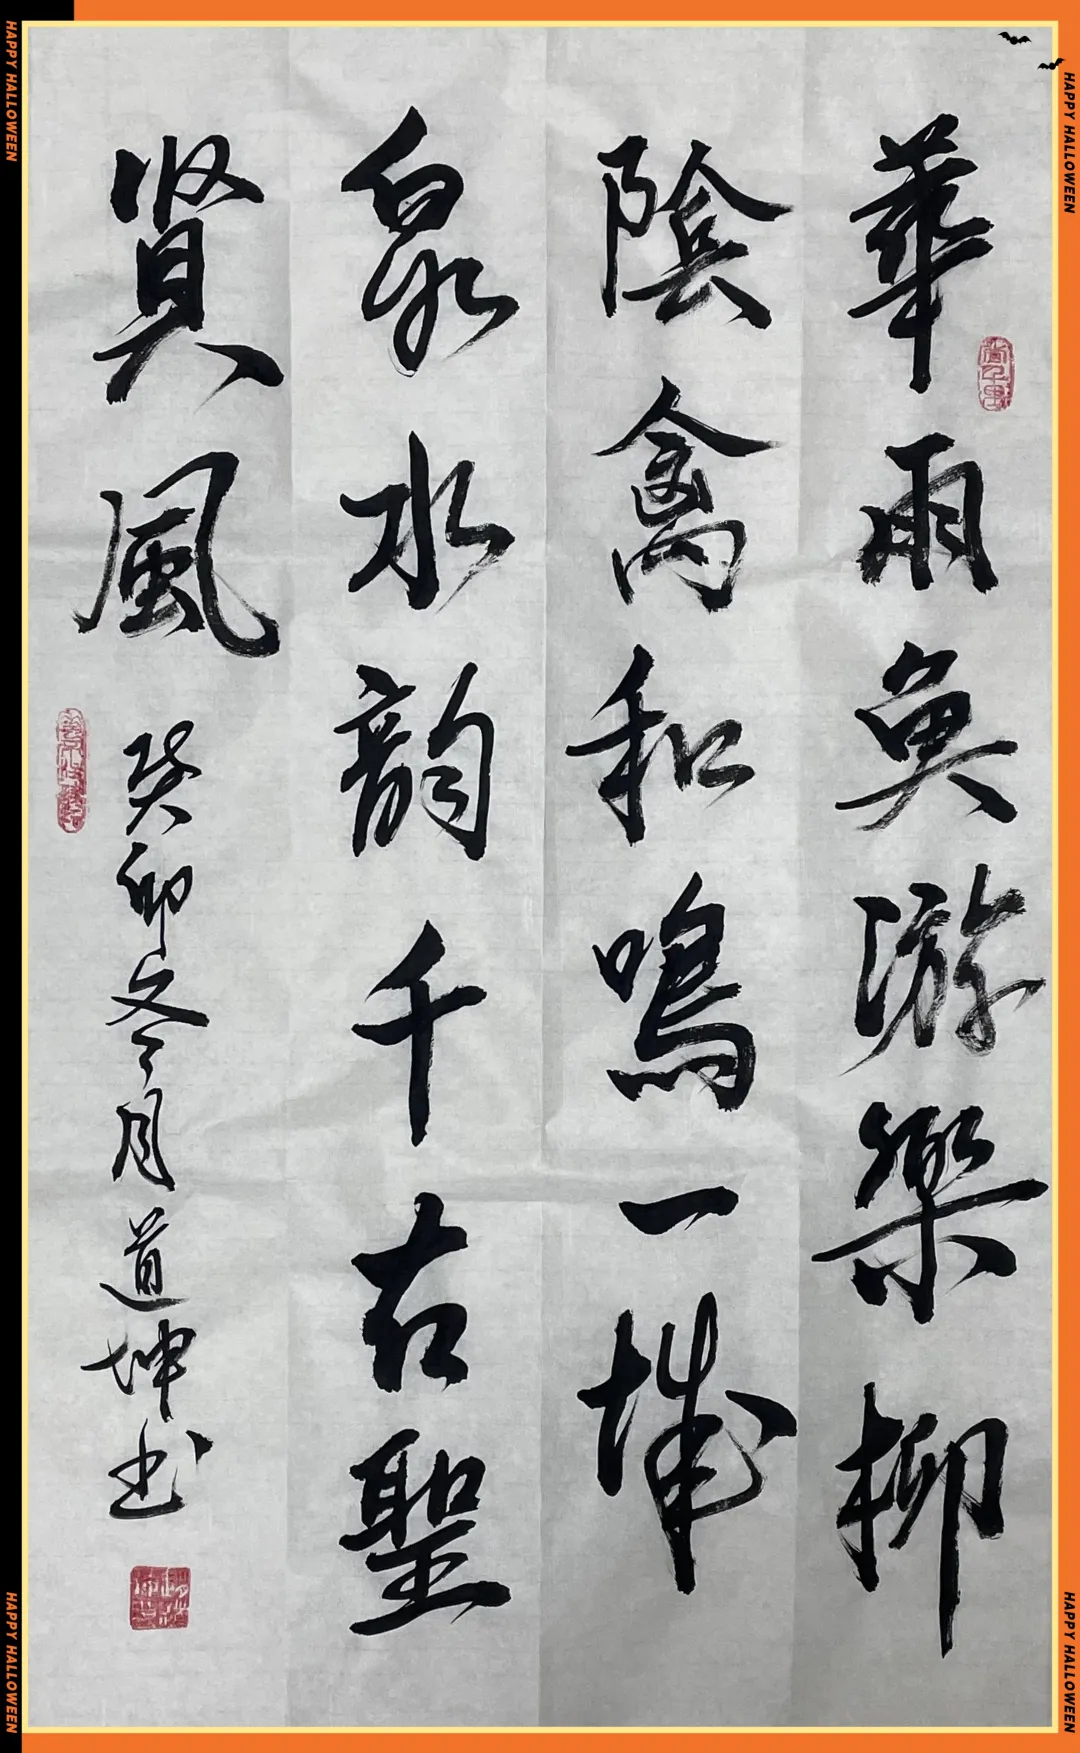 華雨魚游樂柳
陰禽和鳴一城
泉水韻千古聖
賢風
癸卯冬月道坤书
HAPPY HALLOWEEN
HAPPY HALLOWEEN
HAPPY HALLOWEEN
HAPPY HALLOWEEN